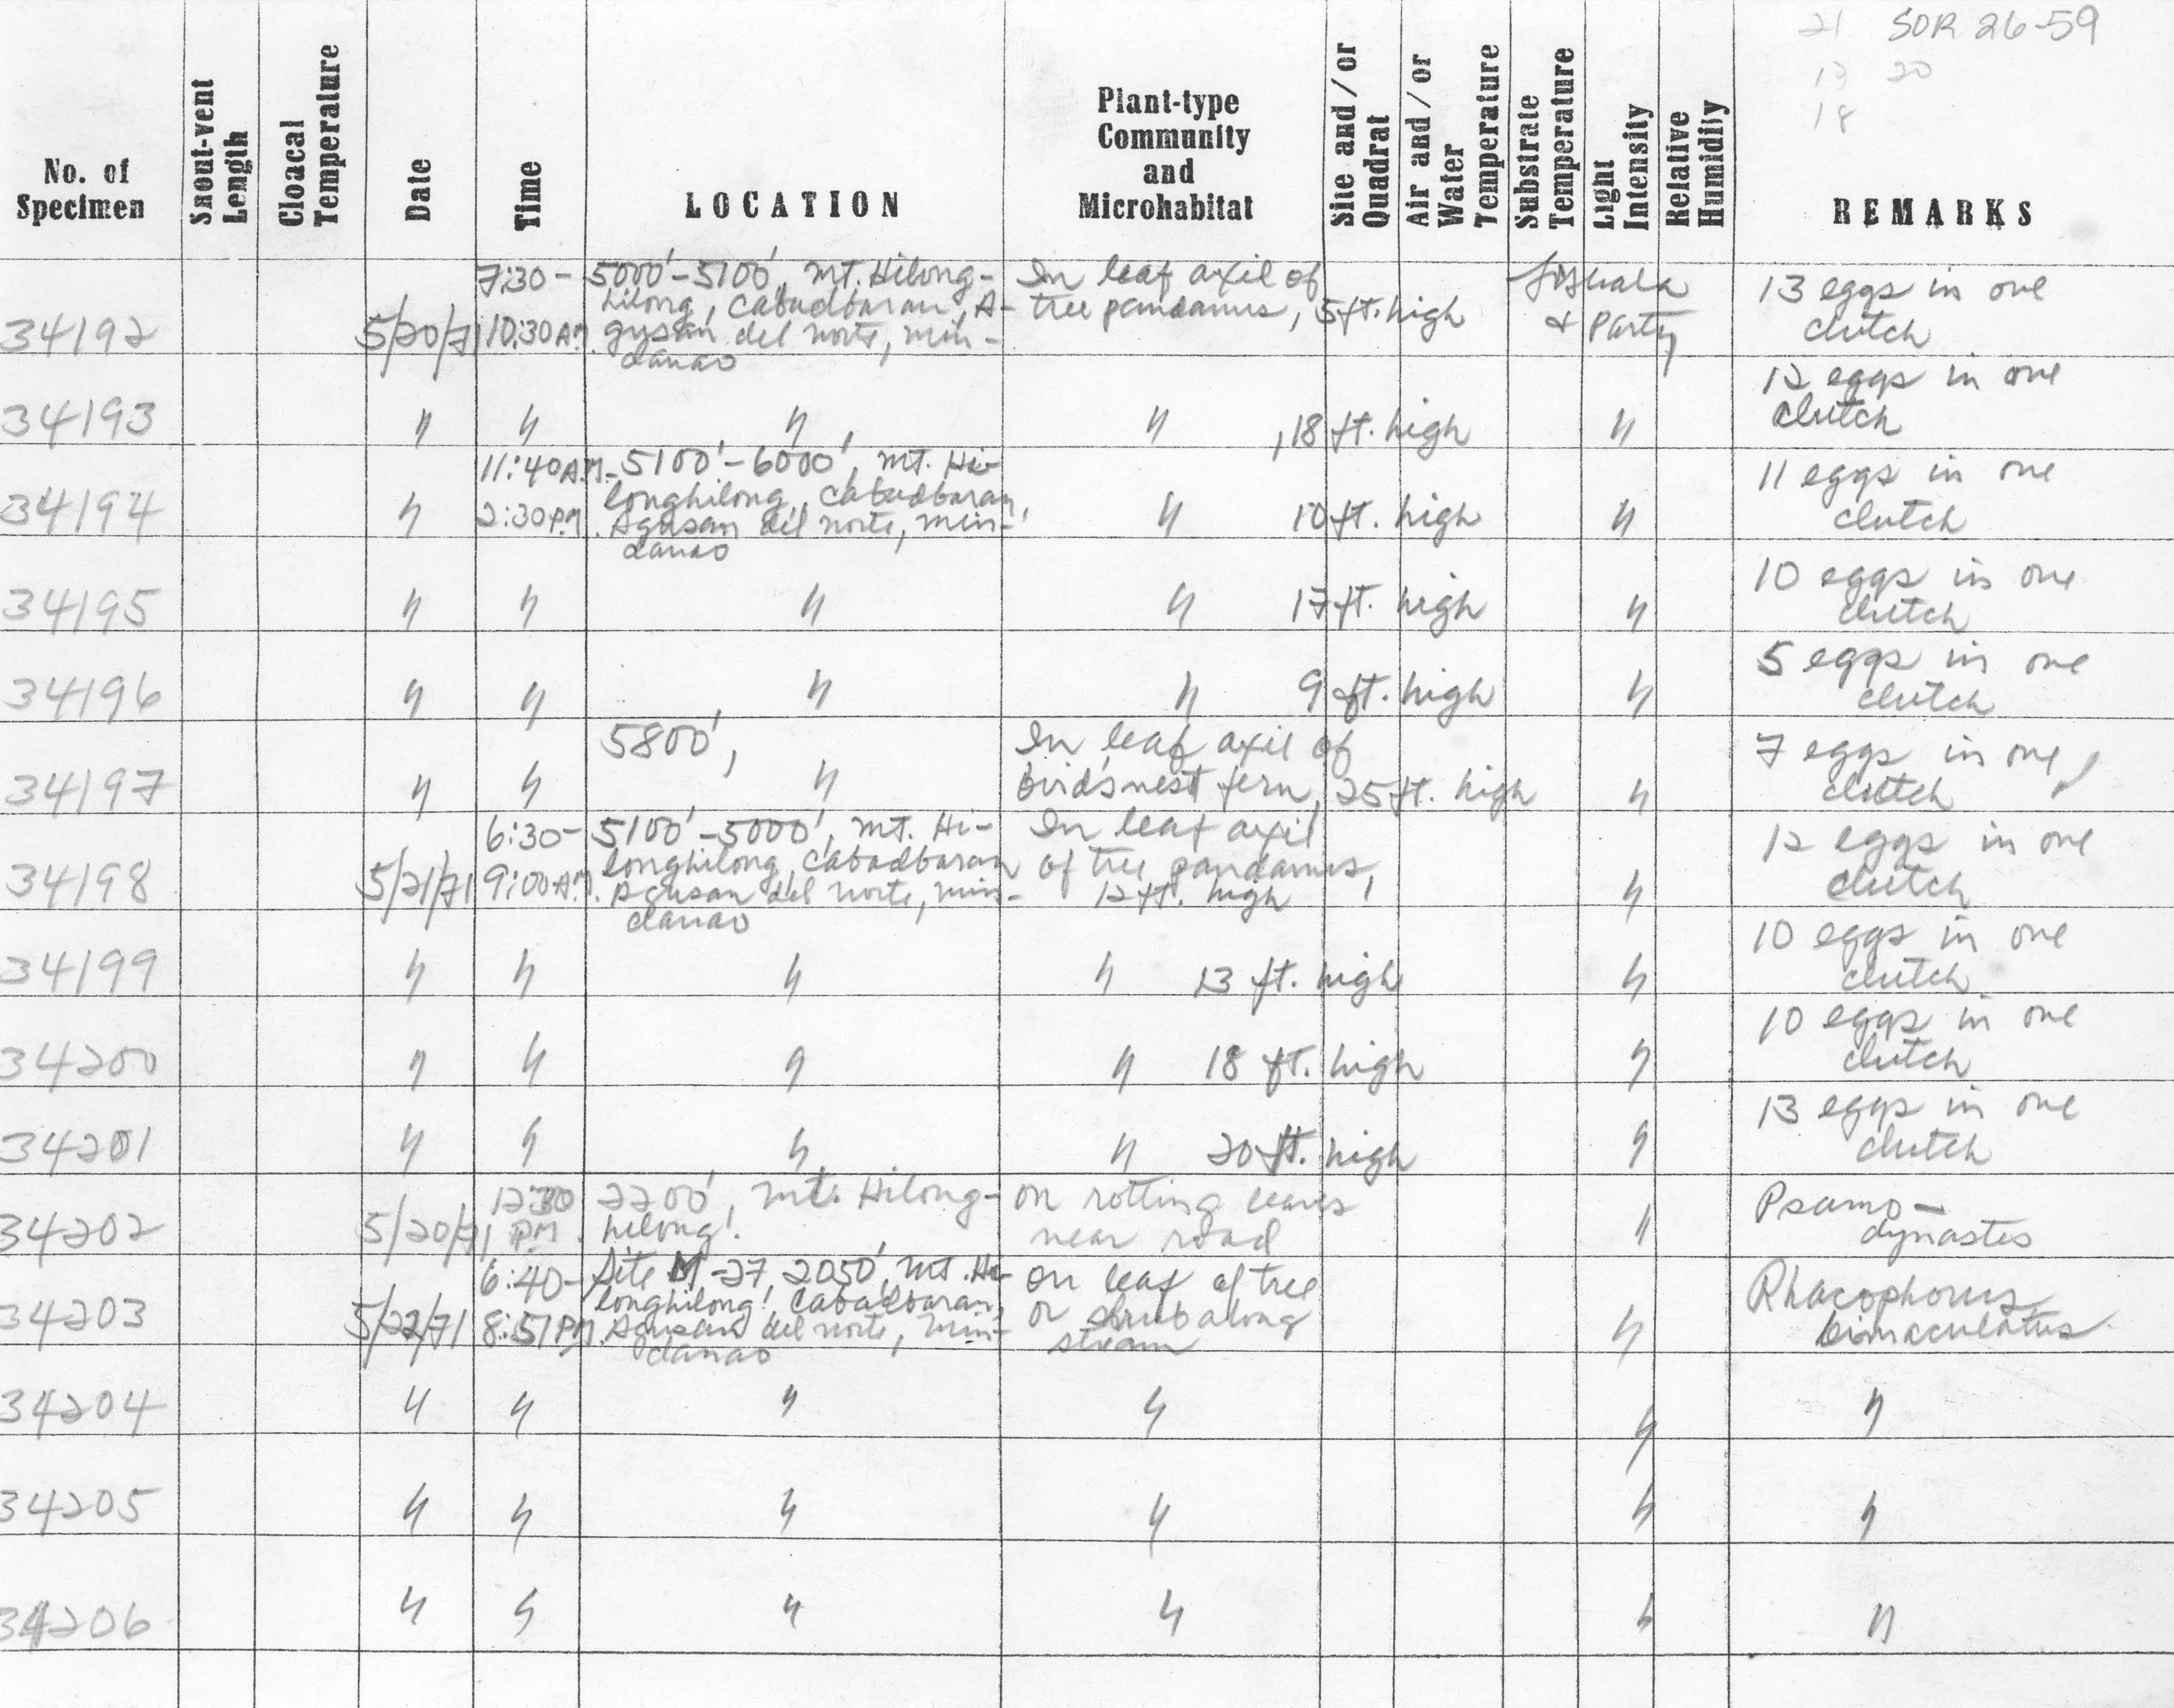 21 SOR 26-59
13 20
18
No. of Specimen Snout-vent Length Cloacal Temperature Date Time LOCATION Plant-type Community and Microhabitat Site and/or Quadrat Air and/or Water Temperature Substrate Temperature Light Intensity Relative Humidity REMARKS
34192 5/20/71 7:30-10:30 A.M. 5000'-5100', Mt. Hilong-hilong, Cabadbaran, Agusan del norte, Min-danao In leaf axil of tree pandanus, 5 ft. high & Party 13 eggs in one clutch
34193 " " " , " , 18 ft. high " 12 eggs in one clutch
34194 " 11:40 A.M.-2:30 P.M. 5100'-6000', Mt. Hi-longhilong, Cabadbaran, Agusan del norte, Min-danao " 10 ft. high " 11 eggs in one clutch
34195 " " " " 17 ft. high " 10 eggs in one clutch
34196 " " " " 9 ft. high " 5 eggs in one clutch
34197 " " 5800', " In leaf axil of birdsnest fern, 25 ft. high " 7 eggs in one clutch
34198 5/21/71 6:30-9:00 A.M. 5100'-5000', Mt. Hi-longhilong, Cabadbaran Agusan del norte, Min-danao In leaf axil of tree pandanus, 12 ft. high " 12 eggs in one clutch
34199 " " " " 13 ft. high " 10 eggs in one clutch
34200 " " " " 18 ft. high " 10 eggs in one clutch
34201 " " " " 20 ft. high " 13 eggs in one clutch
34202 5/20/71 12:30 PM. 2200', Mt. Hilong-hilong. on rotting leaves near road " Psamo-dynastes
34203 5/22/71 6:40-8:51 PM. Site M-27, 2050', Mt. Hi-longhilong, Cabadbaran, Agusan del norte, Min-danao on leaf of tree or shrub along stream " Rhacophorus bimaculatus
34204 " " " " " "
34205 " " " " " "
34206 " " " " " "